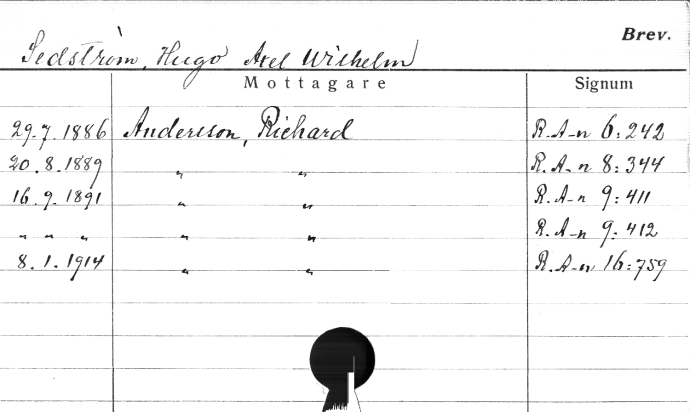 Brev.
Sedström, Hugo Axel Wilhelm
Mottagare Signum
29.7.1886 Andersson, Richard R.A-n 6:242
20.8.1889 " " R.A-n 8:344
16.9.1891 " " R.A-n 9:411
" " " " " R.A-n 9:412
8.1.1914 " " R.A-n 16:759